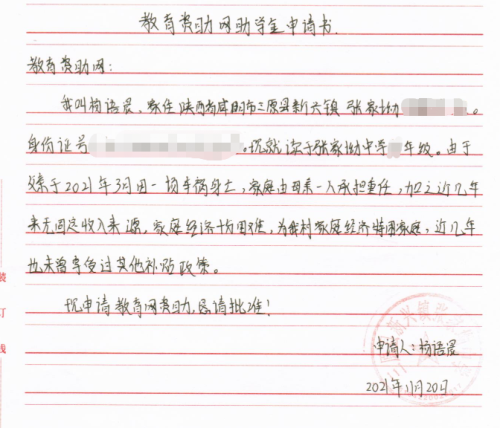 教育资助网助学金申请书.
教育资助网:
我叫杨语晨。家住陕西省咸阳市三原县新兴镇张家坳
身份证号 。现就读于张家坳中学 年级。由于
父亲于2021年3月因一场车祸身亡,家庭由母亲一人承担重任,加之近几年
来无固定收入来源,家庭经济十分困难,为我村家庭经济特困家庭,近几年
也未曾享受过其他补贴政策。
现申请教育网资助,恳请批准!
申请人:杨语晨
2021年11月20日
装
订
线